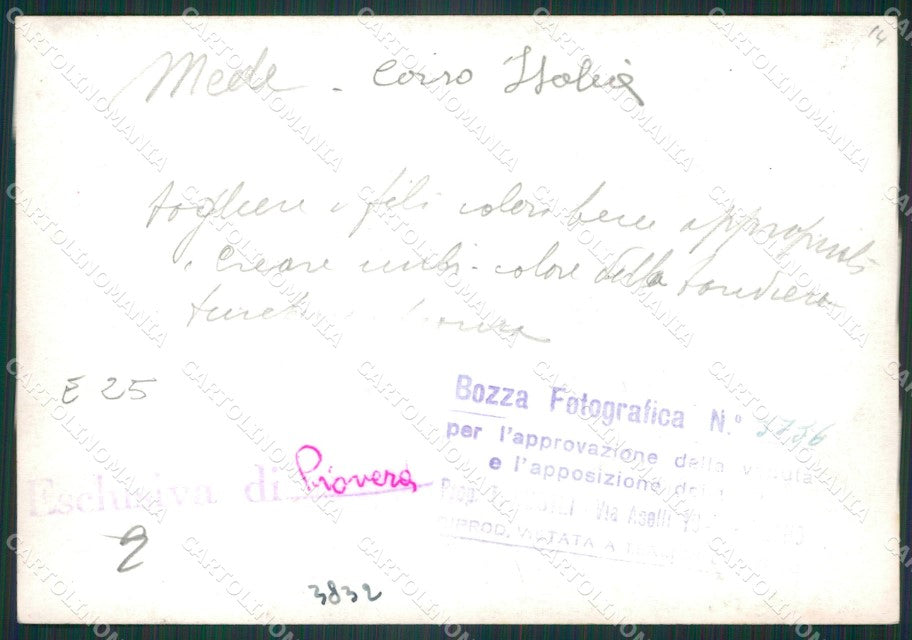 14
Mede - Corso Italia
togliere i fili colori bene appropriati
creare nubi - colore della bandiera
E 25
Bozza Fotografica N.° 5756
per l'approvazione della veduta
e l'apposizione
Esclusiva di Piovera
Via Aselli
RIPROD. VIETATA A
2
3832
CARTOLINOMANIA